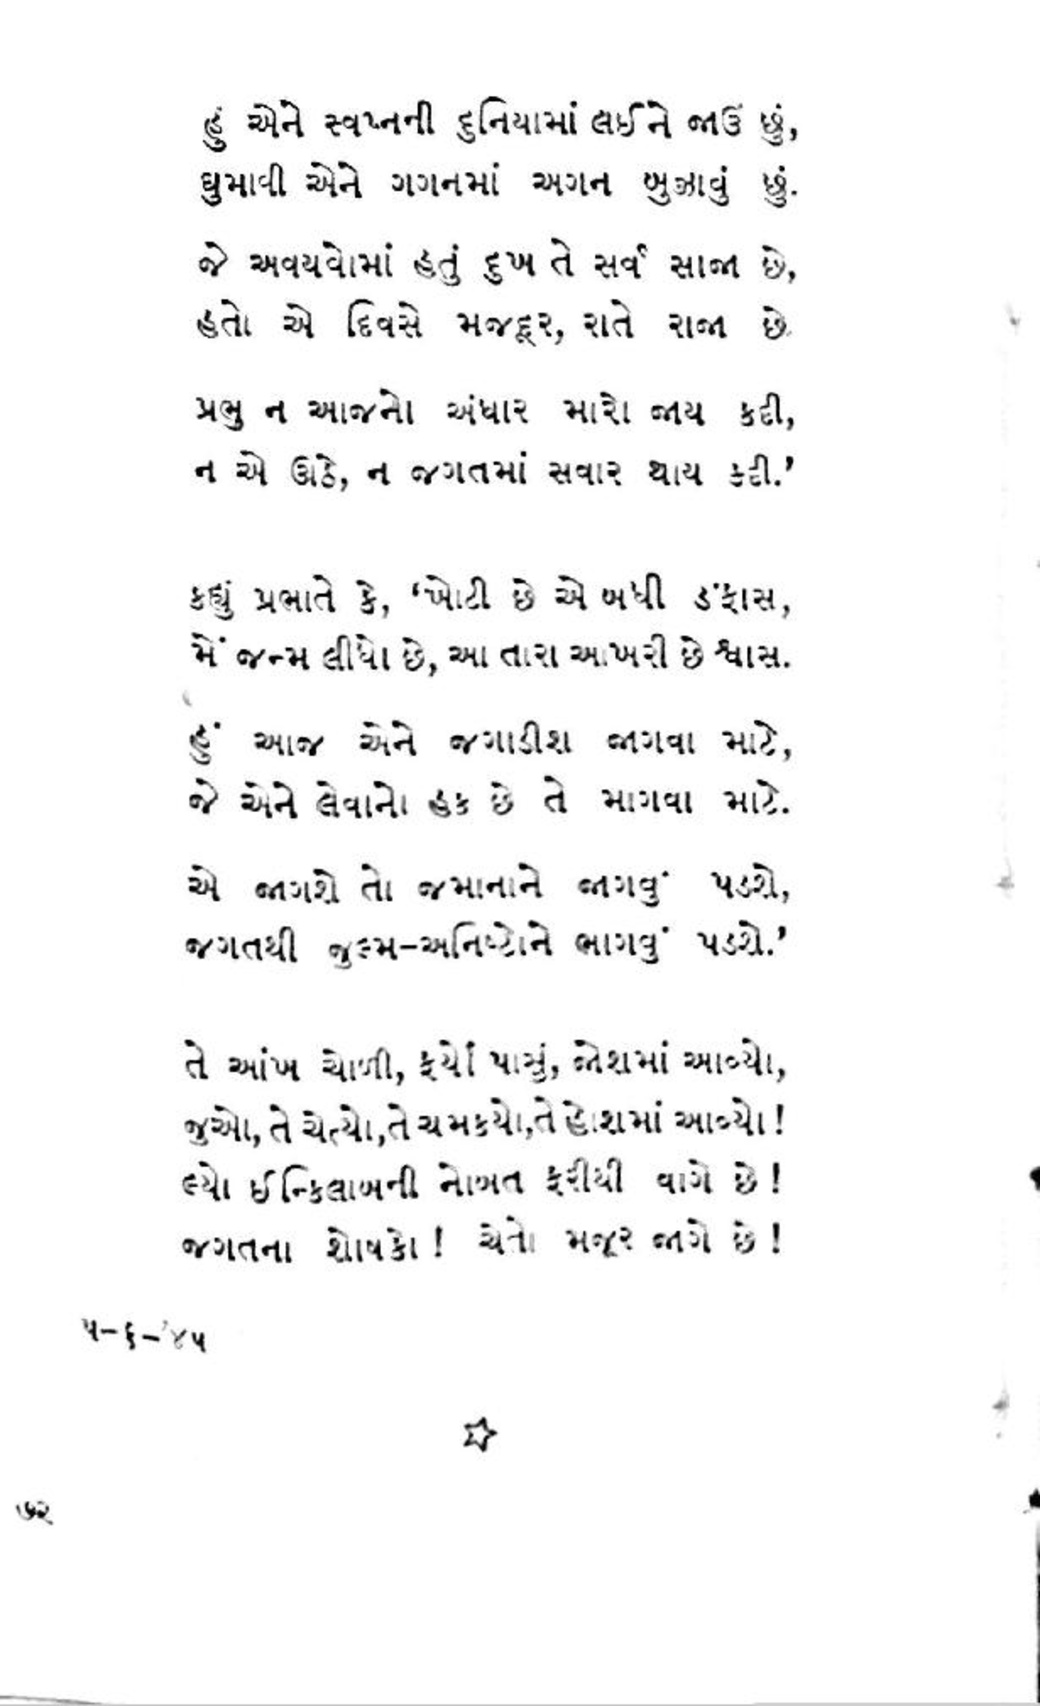 હું એને સ્વપ્નની દુનિયામાં લઈને જાઉં છું,
ઘુમાવી એને ગગનમાં અગન બુઝાવું છું.
જે અવયવોમાં હતું દુખ તે સર્વ સાજા છે,
હતો એ દિવસે મજદૂર, રાતે રાજા છે.
પ્રભુ ન આજનો અંધાર મારો જાય કદી,
ન એ ઊઠે, ન જગતમાં સવાર થાય કદી.’
કહ્યું પ્રભાતે કે, ‘ખોટી છે એ બધી ડંફાસ,
મેં જન્મ લીધો છે, આ તારા આખરી છે શ્વાસ.
હું આજ એને જગાડીશ જાગવા માટે,
જે એને લેવાનો હક છે તે માગવા માટે.
એ જાગશે તો જમાનાને જાગવું પડશે,
જગતથી જુલ્મ-અનિષ્ટોને ભાગવું પડશે.’
તે આંખ ચોળી, ફર્યો પાસું, જોશમાં આવ્યો,
જુઓ, તે ચેત્યો, તે ચમકયો, તે હોશમાં આવ્યો!
લ્યો ઈન્કિલાબની નોબત ફરીથી વાગે છે!
જગતના શોષકો! ચેતો મજૂર જાગે છે!
૫-૬-’૪૫
૭૨